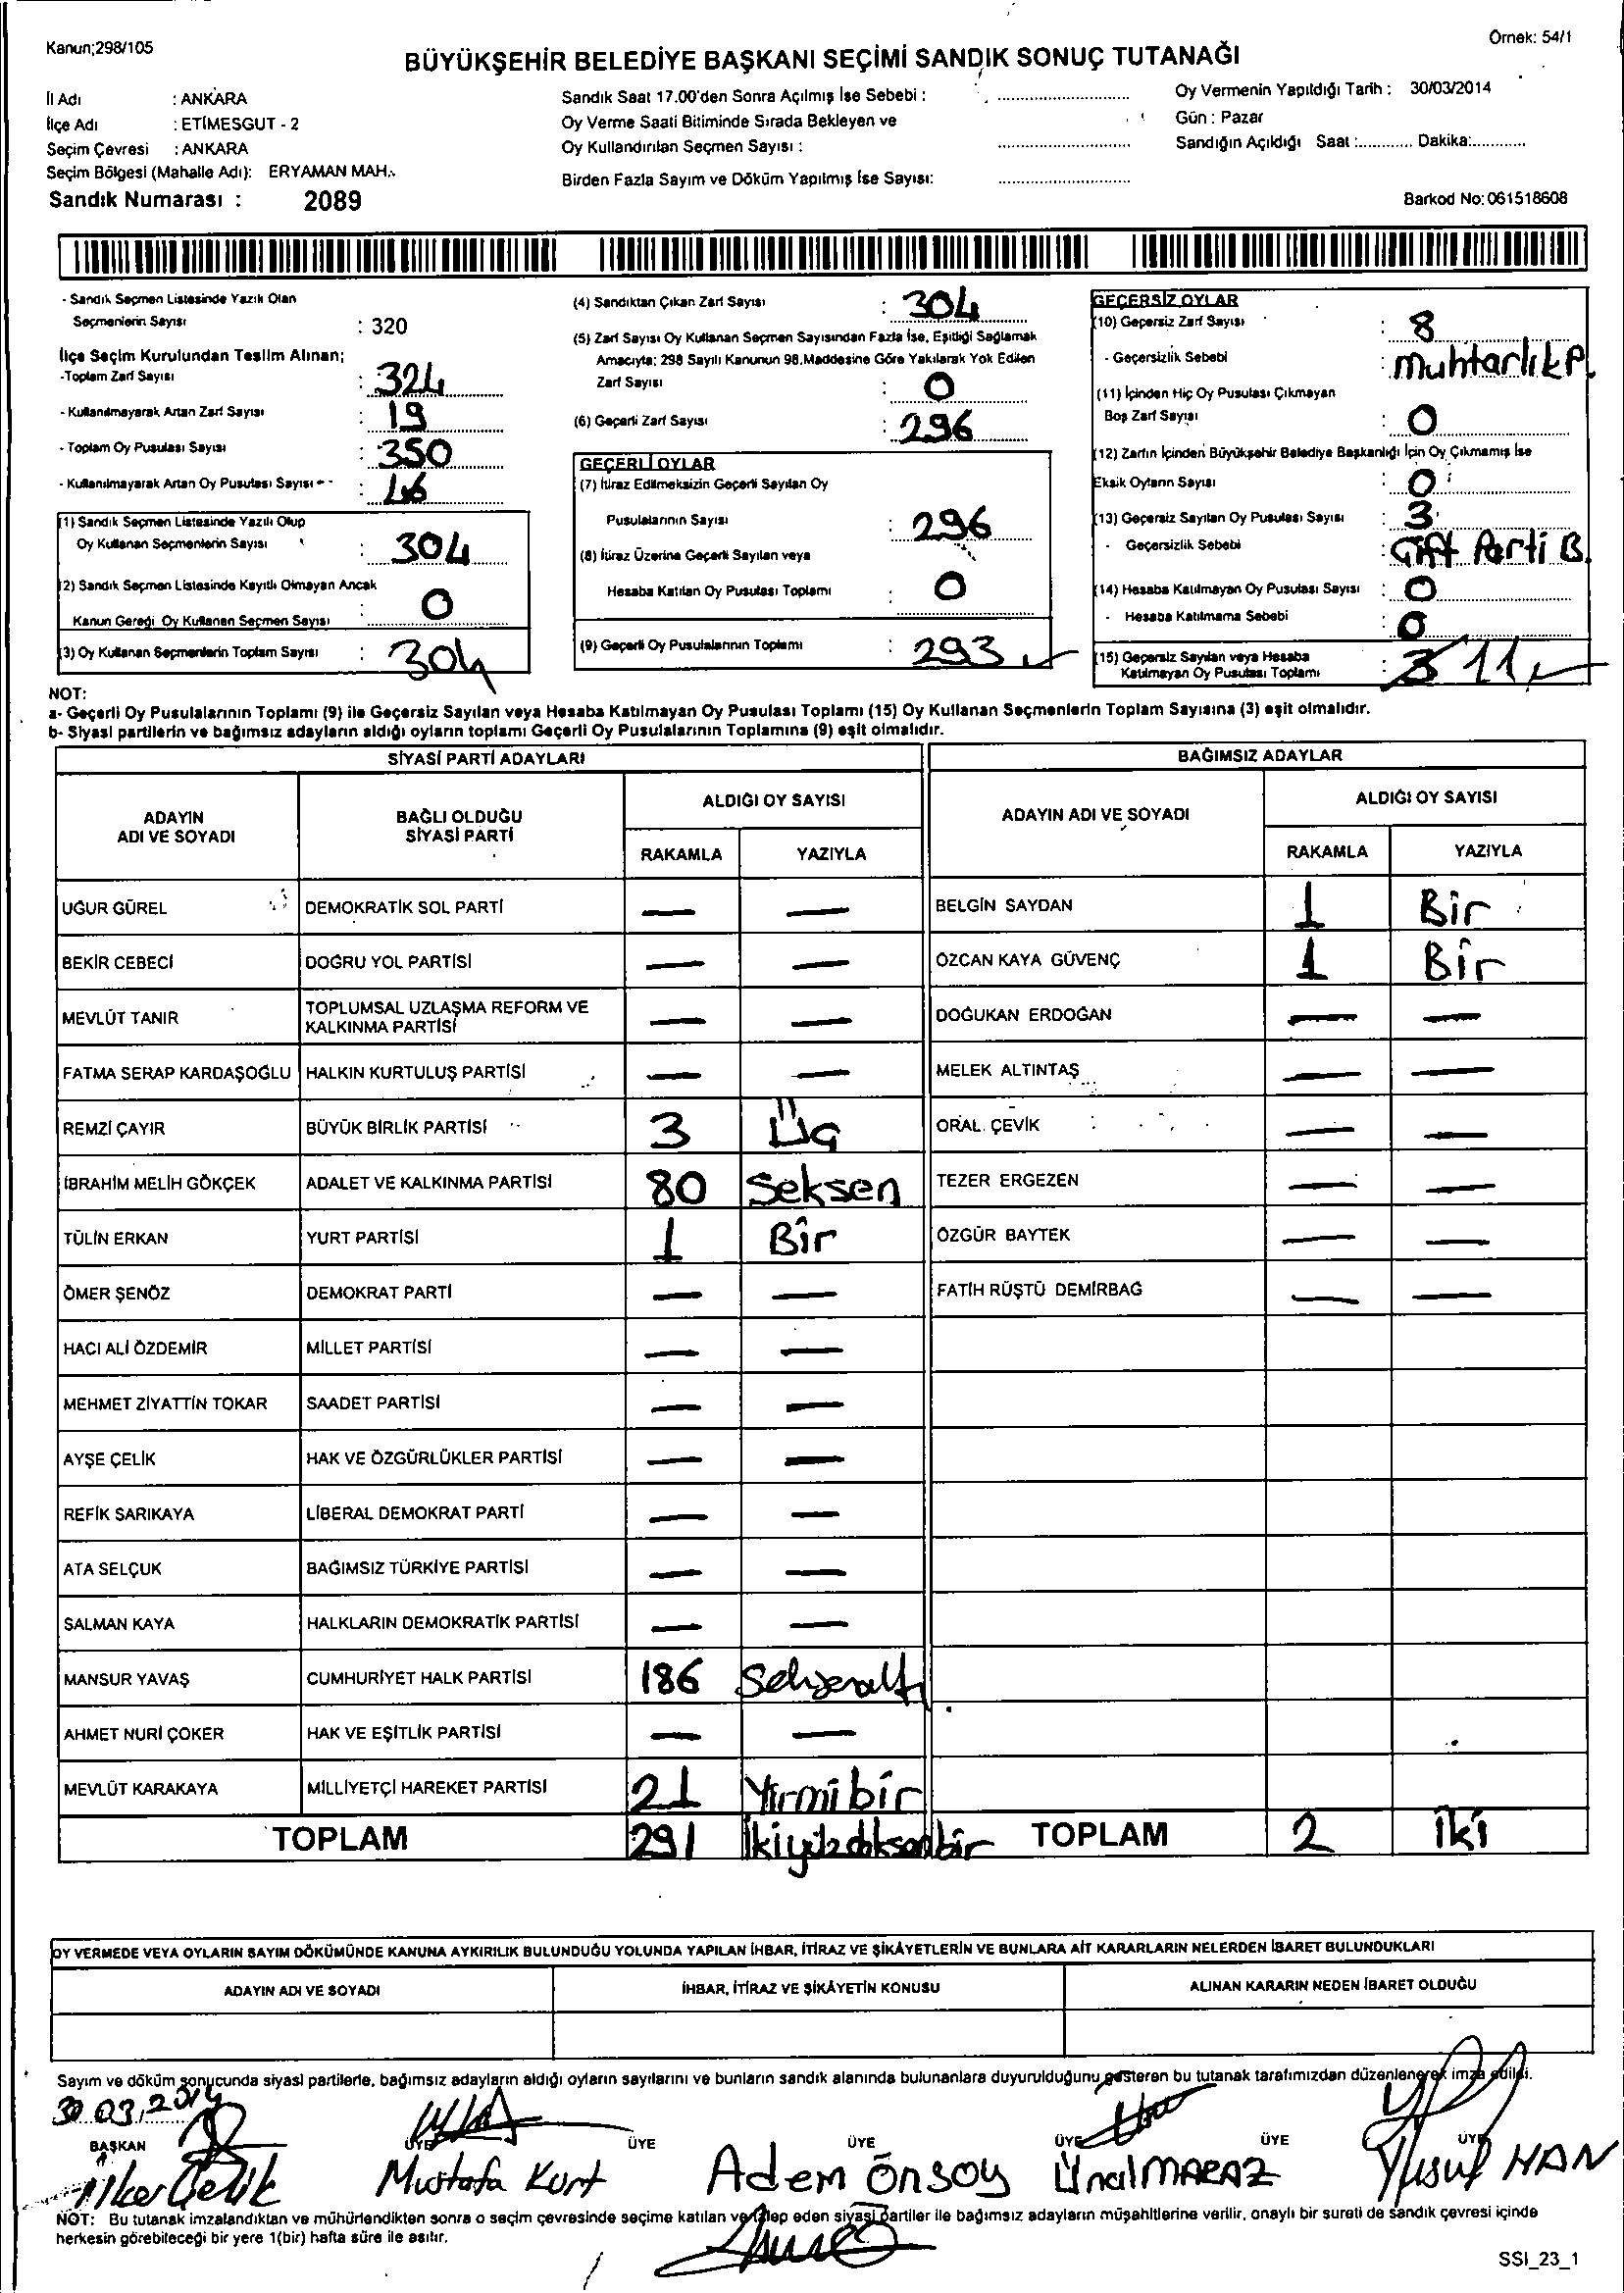 Kanun;298/105
Örnek: 54/1
BÜYÜKŞEHİR BELEDİYE BAŞKANI SEÇİMİ SANDIK SONUÇ TUTANAĞI
İl Adı : ANKARA
İlçe Adı : ETİMESGUT - 2
Seçim Çevresi : ANKARA
Seçim Bölgesi (Mahalle Adı): ERYAMAN MAH.
Sandık Numarası : 2089
Sandık Saat 17.00'den Sonra Açılmış İse Sebebi : ..........................
Oy Verme Saati Bitiminde Sırada Bekleyen ve
Oy Kullandırılan Seçmen Sayısı : ..........................
Birden Fazla Sayım ve Döküm Yapılmış İse Sayısı: ..........................
Oy Vermenin Yapıldığı Tarih : 30/03/2014
Gün : Pazar
Sandığın Açıldığı Saat :............ Dakika:............
Barkod No: 061518608
- Sandık Seçmen Listesinde Yazılı Olan
Seçmenlerin Sayısı : 320
İlçe Seçim Kurulundan Teslim Alınan;
-Toplam Zarf Sayısı : 324
- Kullanılmayarak Artan Zarf Sayısı : 19
- Toplam Oy Pusulası Sayısı : 350
- Kullanılmayarak Artan Oy Pusulası Sayısı : 46
(1) Sandık Seçmen Listesinde Yazılı Olup
Oy Kullanan Seçmenlerin Sayısı : 304
(2) Sandık Seçmen Listesinde Kayıtlı Olmayan Ancak
Kanun Gereği Oy Kullanan Seçmen Sayısı : 0
(3) Oy Kullanan Seçmenlerin Toplam Sayısı : 304
(4) Sandıktan Çıkan Zarf Sayısı : 304
(5) Zarf Sayısı Oy Kullanan Seçmen Sayısından Fazla İse, Eşitliği Sağlamak
Amacıyla; 298 Sayılı Kanunun 98.Maddesine Göre Yakılarak Yok Edilen
Zarf Sayısı : 0
(6) Geçerli Zarf Sayısı : 296
GEÇERLİ OYLAR
(7) İtiraz Edilmeksizin Geçerli Sayılan Oy
Pusulalarının Sayısı : 296
(8) İtiraz Üzerine Geçerli Sayılan veya
Hesaba Katılan Oy Pusulası Toplamı : 0
(9) Geçerli Oy Pusulalarının Toplamı : 293
GEÇERSİZ OYLAR
(10) Geçersiz Zarf Sayısı : 8
- Geçersizlik Sebebi : Muhtarlık P.
(11) İçinden Hiç Oy Pusulası Çıkmayan
Boş Zarf Sayısı : 0
(12) Zarfın İçinden Büyükşehir Belediye Başkanlığı İçin Oy Çıkmamış İse
Eksik Oyların Sayısı : 0
(13) Geçersiz Sayılan Oy Pusulası Sayısı : 3
- Geçersizlik Sebebi : Çift Parti B.
(14) Hesaba Katılmayan Oy Pusulası Sayısı : 0
- Hesaba Katılmama Sebebi : 0
(15) Geçersiz Sayılan veya Hesaba
Katılmayan Oy Pusulası Toplamı : 3 11
NOT:
a- Geçerli Oy Pusulalarının Toplamı (9) ile Geçersiz Sayılan veya Hesaba Katılmayan Oy Pusulası Toplamı (15) Oy Kullanan Seçmenlerin Toplam Sayısına (3) eşit olmalıdır.
b- Siyasi partilerin ve bağımsız adayların aldığı oyların toplamı Geçerli Oy Pusulalarının Toplamına (9) eşit olmalıdır.
SİYASİ PARTİ ADAYLARI
ADAYIN ADI VE SOYADI
BAĞLI OLDUĞU SİYASİ PARTİ
ALDIĞI OY SAYISI
RAKAMLA YAZIYLA
UĞUR GÜREL DEMOKRATİK SOL PARTİ — —
BEKİR CEBECİ DOĞRU YOL PARTİSİ — —
MEVLÜT TANIR TOPLUMSAL UZLAŞMA REFORM VE KALKINMA PARTİSİ — —
FATMA SERAP KARDAŞOĞLU HALKIN KURTULUŞ PARTİSİ — —
REMZİ ÇAYIR BÜYÜK BİRLİK PARTİSİ 3 Üç
İBRAHİM MELİH GÖKÇEK ADALET VE KALKINMA PARTİSİ 80 Seksen
TÜLİN ERKAN YURT PARTİSİ 1 Bir
ÖMER ŞENÖZ DEMOKRAT PARTİ — —
HACI ALİ ÖZDEMİR MİLLET PARTİSİ — —
MEHMET ZİYATTİN TOKAR SAADET PARTİSİ — —
AYŞE ÇELİK HAK VE ÖZGÜRLÜKLER PARTİSİ — —
REFİK SARIKAYA LİBERAL DEMOKRAT PARTİ — —
ATA SELÇUK BAĞIMSIZ TÜRKİYE PARTİSİ — —
SALMAN KAYA HALKLARIN DEMOKRATİK PARTİSİ — —
MANSUR YAVAŞ CUMHURİYET HALK PARTİSİ 186
AHMET NURİ ÇOKER HAK VE EŞİTLİK PARTİSİ — —
MEVLÜT KARAKAYA MİLLİYETÇİ HAREKET PARTİSİ 21 Yirmibir
TOPLAM 291 İkiyüzdoksanbir
BAĞIMSIZ ADAYLAR
ADAYIN ADI VE SOYADI
ALDIĞI OY SAYISI
RAKAMLA YAZIYLA
BELGİN SAYDAN 1 Bir
ÖZCAN KAYA GÜVENÇ 1 Bir
DOĞUKAN ERDOĞAN — —
MELEK ALTINTAŞ — —
ORAL ÇEVİK — —
TEZER ERGEZEN — —
ÖZGÜR BAYTEK — —
FATİH RÜŞTÜ DEMİRBAĞ — —
TOPLAM 2 İki
OY VERMEDE VEYA OYLARIN SAYIM DÖKÜMÜNDE KANUNA AYKIRILIK BULUNDUĞU YOLUNDA YAPILAN İHBAR, İTİRAZ VE ŞİKÂYETLERİN VE BUNLARA AİT KARARLARIN NELERDEN İBARET BULUNDUKLARI
ADAYIN ADI VE SOYADI
İHBAR, İTİRAZ VE ŞİKÂYETİN KONUSU
ALINAN KARARIN NEDEN İBARET OLDUĞU
Sayım ve döküm sonucunda siyasi partilerle, bağımsız adayların aldığı oyların sayılarını ve bunların sandık alanında bulunanlara duyurulduğunu gösteren bu tutanak tarafımızdan düzenlenerek imza edildi.
30.03.2014
BAŞKAN ÜYE ÜYE ÜYE ÜYE ÜYE ÜYE
İlker Çelik Mustafa Kurt Adem Önsoy Ünal MARAZ Yusuf HAN
NOT: Bu tutanak imzalandıktan ve mühürlendikten sonra o seçim çevresinde seçime katılan ve talep eden siyasi partiler ile bağımsız adayların müşahitlerine verilir, onaylı bir sureti de sandık çevresi içinde
herkesin görebileceği bir yere 1(bir) hafta süre ile asılır.
SSI_23_1